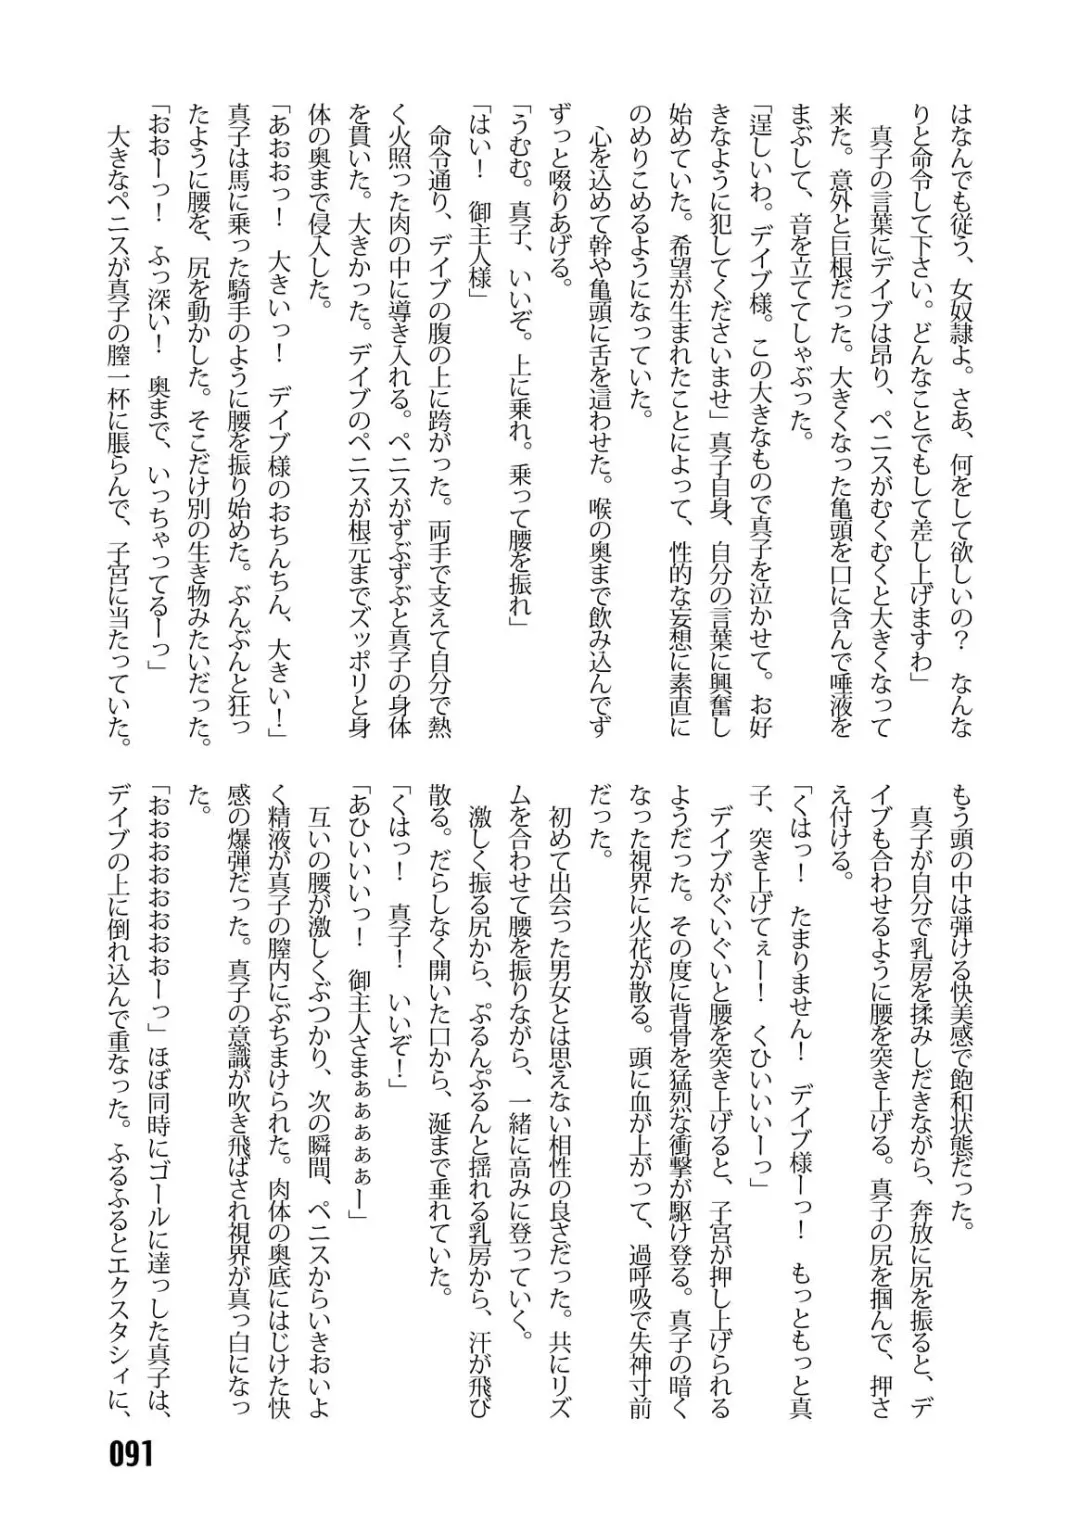 はなんでも従う、女奴隷よ。さあ、何をして欲しいの？　なんな
りと命令して下さい。どんなことでもして差し上げますわ」
　真子の言葉にデイブは昂り、ペニスがむくむくと大きくなって
来た。意外と巨根だった。大きくなった亀頭を口に含んで唾液を
まぶして、音を立ててしゃぶった。
「逞しいわ。デイブ様。この大きなもので真子を泣かせて。お好
きなように犯してくださいませ」真子自身、自分の言葉に興奮し
始めていた。希望が生まれたことによって、性的な妄想に素直に
のめりこめるようになっていた。
　心を込めて幹や亀頭に舌を這わせた。喉の奥まで飲み込んでず
ずっと啜りあげる。
「うむむ。真子、いいぞ。上に乗れ。乗って腰を振れ」
「はい！　御主人様」
　命令通り、デイブの腹の上に跨がった。両手で支えて自分で熱
く火照った肉の中に導き入れる。ペニスがずぶずぶと真子の身体
を貫いた。大きかった。デイブのペニスが根元までズッポリと身
体の奥まで侵入した。
「あおおっ！　大きいっ！　デイブ様のおちんちん、大きい！」
真子は馬に乗った騎手のように腰を振り始めた。ぶんぶんと狂っ
たように腰を、尻を動かした。そこだけ別の生き物みたいだった。
「おおーっ！　ふっ深い！　奥まで、いっちゃってるーっ」
　大きなペニスが真子の膣一杯に脹らんで、子宮に当たっていた。
もう頭の中は弾ける快美感で飽和状態だった。
　真子が自分で乳房を揉みしだきながら、奔放に尻を振ると、デ
イブも合わせるように腰を突き上げる。真子の尻を掴んで、押さ
え付ける。
「くはっ！　たまりません！　デイブ様ーっ！　もっともっと真
子、突き上げてぇー！　くひいいいーっ」
　デイブがぐいぐいと腰を突き上げると、子宮が押し上げられる
ようだった。その度に背骨を猛烈な衝撃が駆け登る。真子の暗く
なった視界に火花が散る。頭に血が上がって、過呼吸で失神寸前
だった。
　初めて出会った男女とは思えない相性の良さだった。共にリズ
ムを合わせて腰を振りながら、一緒に高みに登っていく。
　激しく振る尻から、ぷるんぷるんと揺れる乳房から、汗が飛び
散る。だらしなく開いた口から、涎まで垂れていた。
「くはっ！　真子！　いいぞ！」
「あひいいいっ！　御主人さまぁぁぁぁぁー」
　互いの腰が激しくぶつかり、次の瞬間、ペニスからいきおいよ
く精液が真子の膣内にぶちまけられた。肉体の奥底にはじけた快
感の爆弾だった。真子の意識が吹き飛ばされ視界が真っ白になっ
た。
「おおおおおおおおーっ」ほぼ同時にゴールに達っした真子は、
デイブの上に倒れ込んで重なった。ふるふるとエクスタシィに、
091